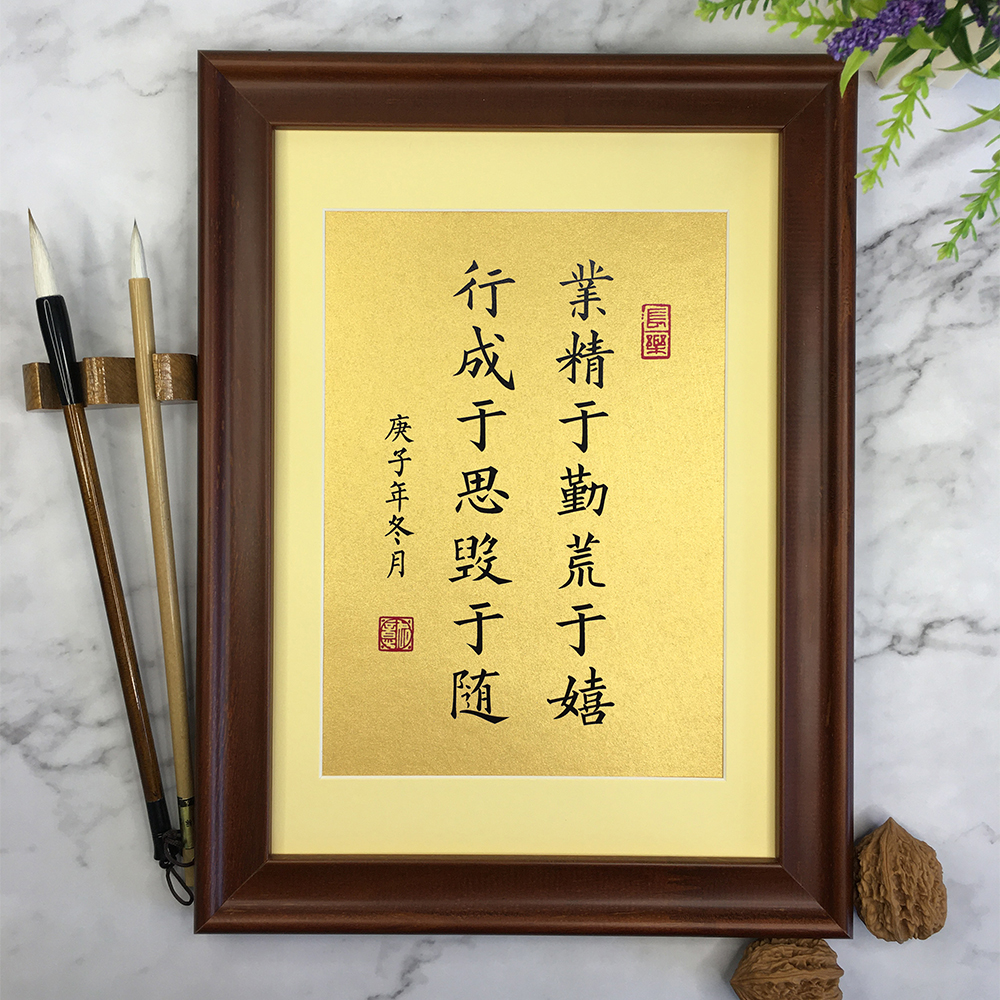 長樂
業精于勤荒于嬉
行成于思毀于随
庚子年冬月